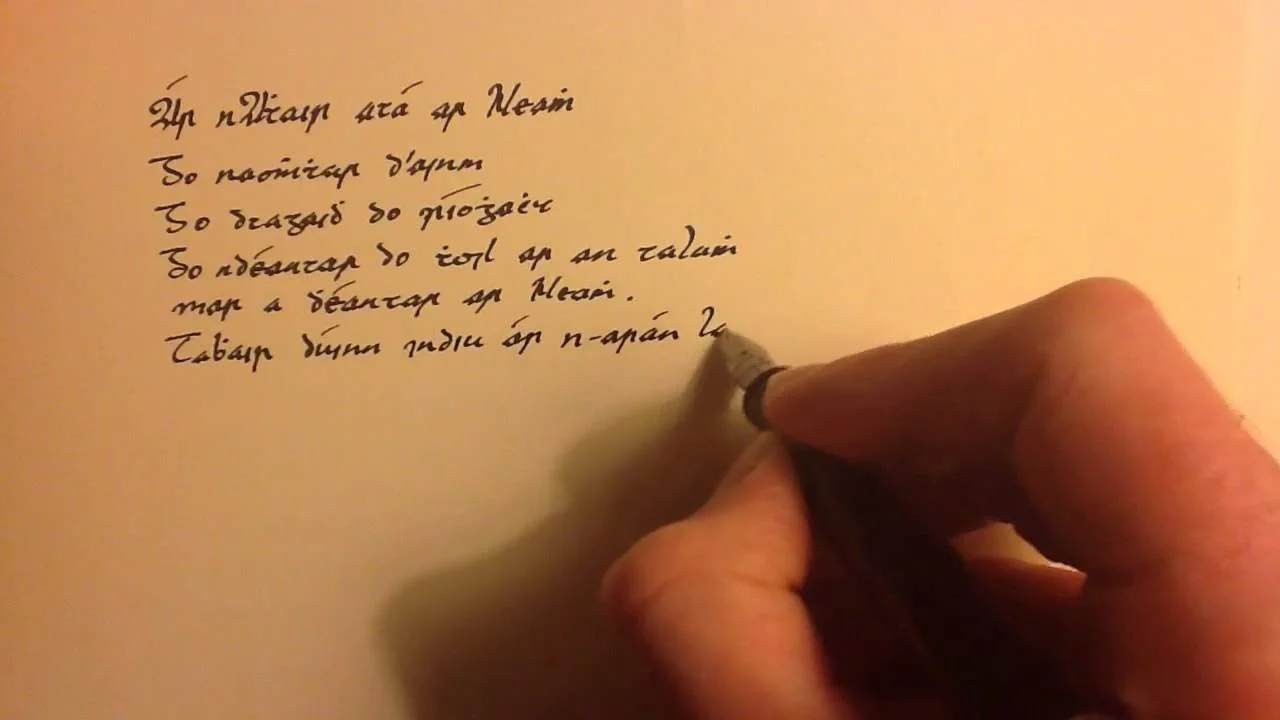 Ár nAṫair atá ar Neaṁ
Go naoṁṫar d'ainm
Go dtagaiḋ do ríoġaċt
Go ndéantar do ṫoil ar an talaṁ
mar a ḋéantar ar Neaṁ.
Taḃair dúinn indiu ár n-arán la